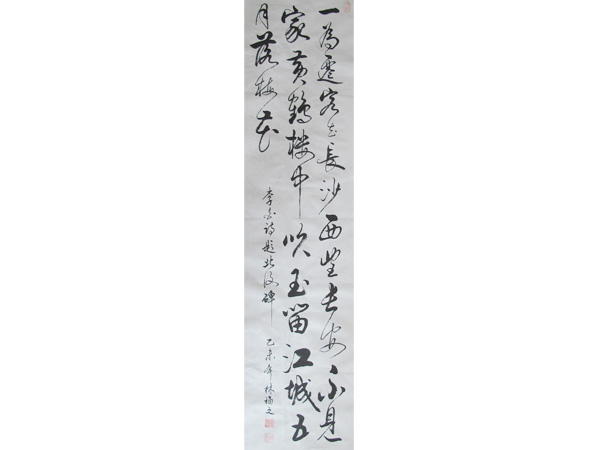 一為遷客去長沙西望長安不見
家黃鶴樓中吹玉笛江城五
月落梅花
李白詩題北漢碑
乙未年林楊文